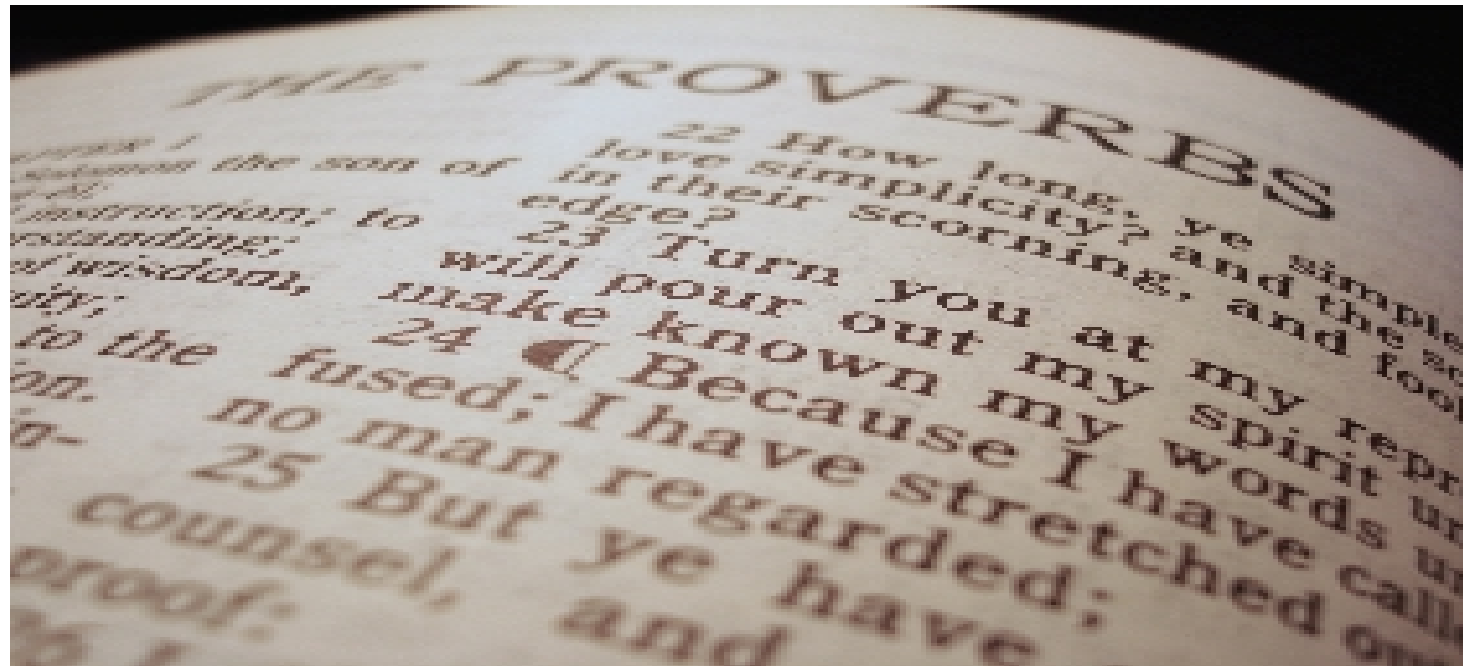 THE PROVERBS
the son of
instruction; to
rstanding;
of wisdom,
uity;
to the
on.
in-
22 How long, ye simple
love simplicity? and the sc
in their scorning, and fool
edge?
23 Turn you at my repr
will pour out my spirit un
make known my words un
24 ¶ Because I have calle
fused; I have stretched out
no man regarded;
25 But ye have
counsel, and
proof: